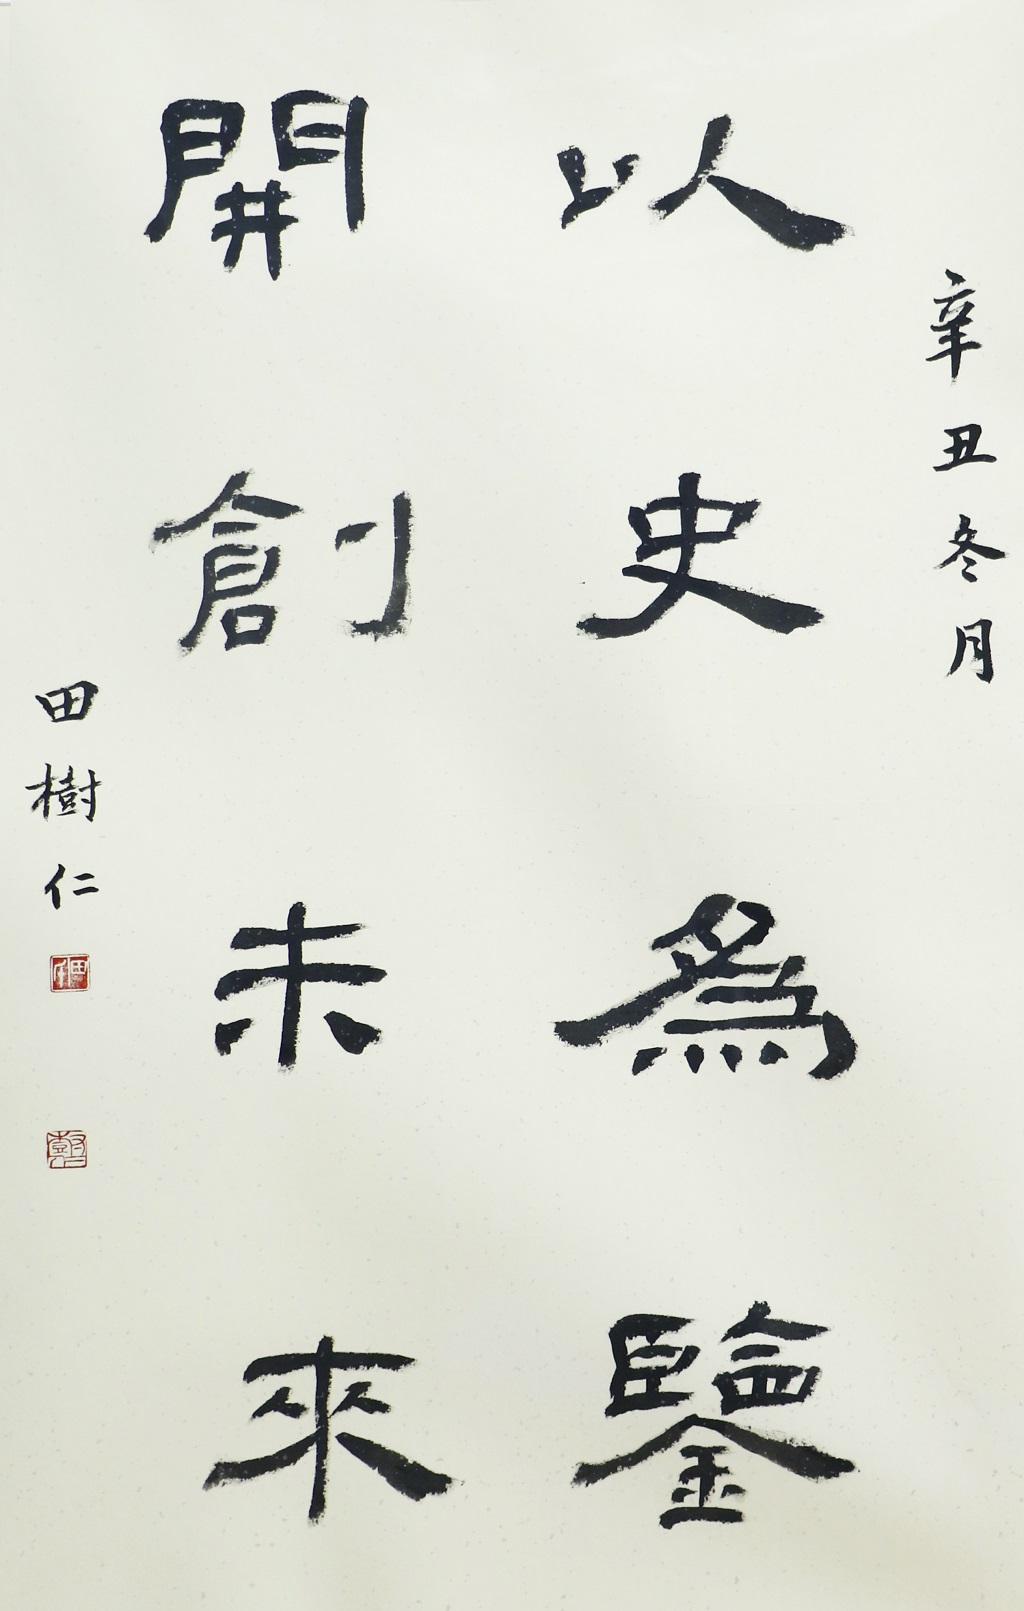 辛丑冬月
以史為鑒
開創未來
田樹仁